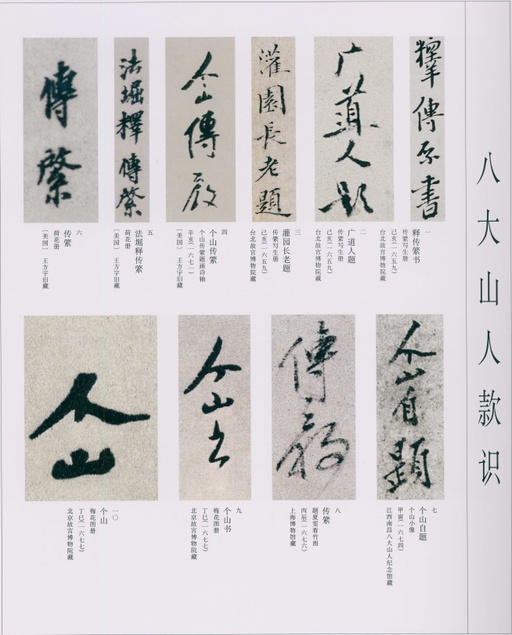 八大山人款识
释传綮书
一
释传綮书
传綮写生册
己亥(一六五九)
台北故宫博物院藏
广道人题
二
广道人题
传綮写生册
己亥(一六五九)
台北故宫博物院藏
灌園長老題
三
灌园长老题
传綮写生册
己亥(一六五九)
台北故宫博物院藏
个山傳綮
四
个山传綮
个山传綮题画诗轴
辛亥(一六七一)
〔美国〕 王方宇旧藏
法堀釋傳綮
五
法堀释传綮
荷花册
〔美国〕 王方宇旧藏
傳綮
六
传綮
荷花册
〔美国〕 王方宇旧藏
个山自題
七
个山自题
个山小像
甲寅(一六七四)
江西南昌八大山人纪念馆藏
傳綮
八
传綮
题夏雯看竹图
丙辰(一六七六)
上海博物馆藏
个山书
九
个山书
梅花图册
丁巳(一六七七)
北京故宫博物院藏
个山
一〇
个山
梅花图册
丁巳(一六七七)
北京故宫博物院藏